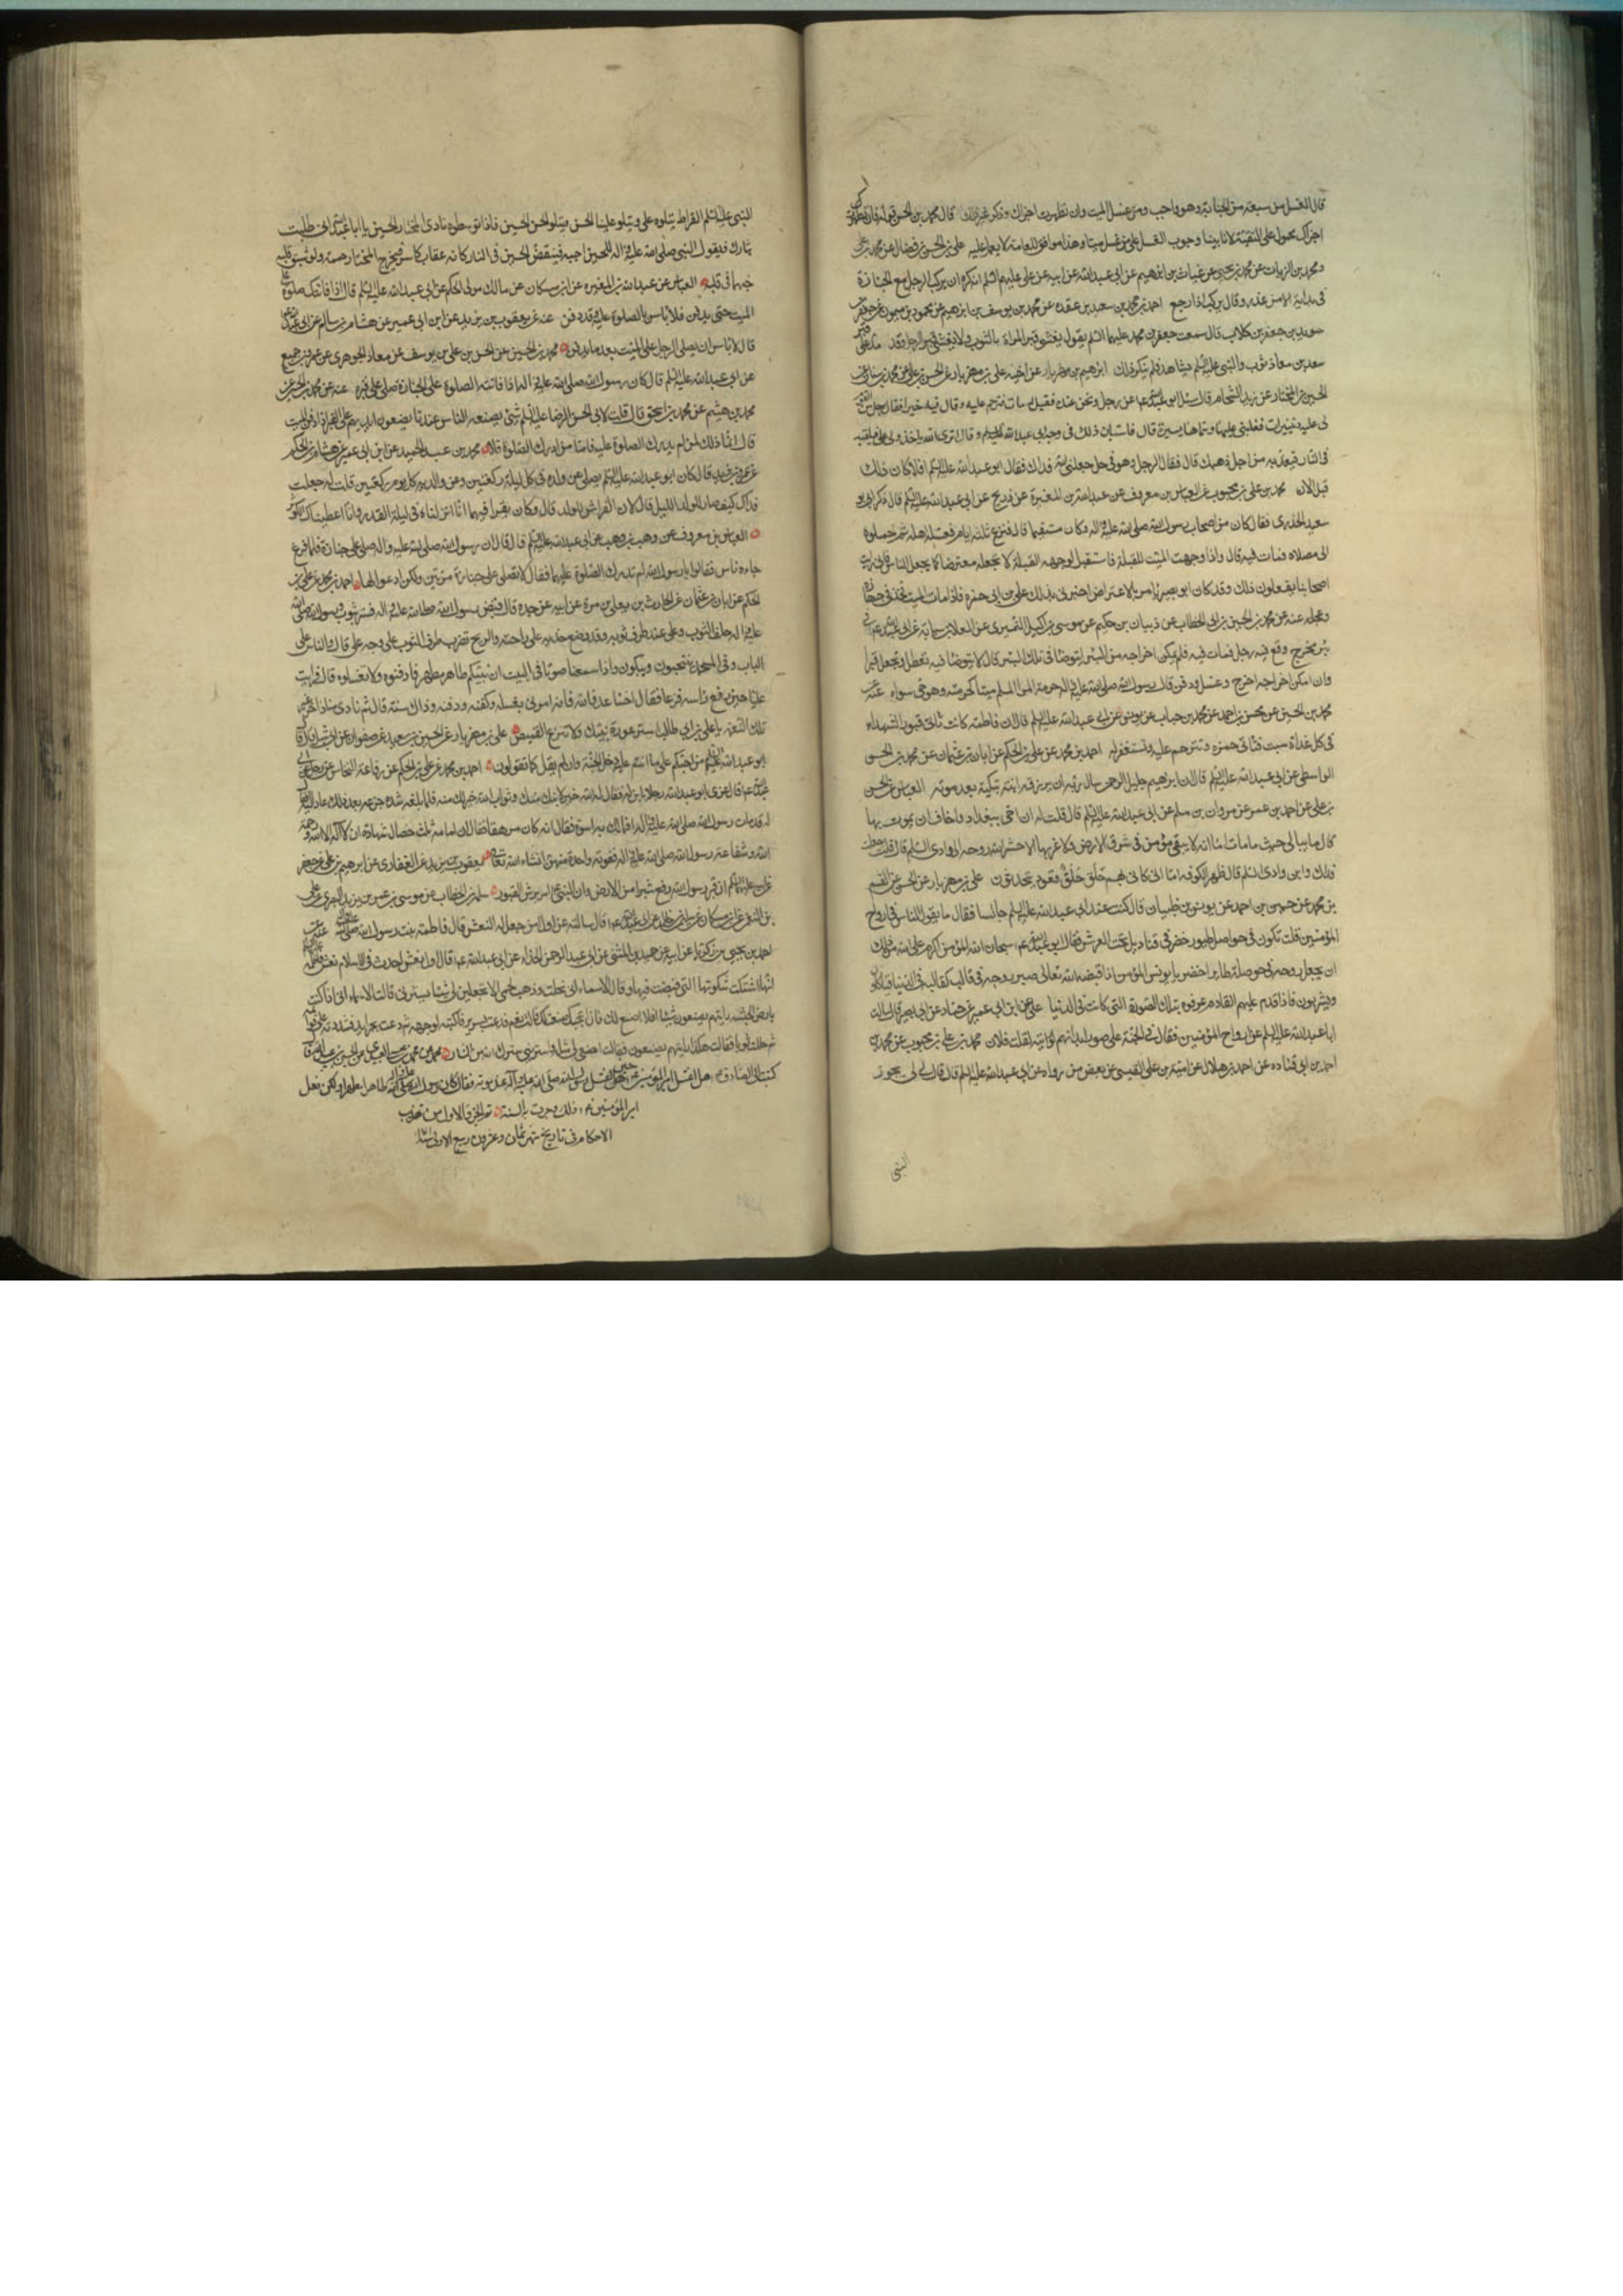 قال الغسل من سبعة من الجنابة وهو واجب ومن غسل الميت وان تطهرت اجزاك وذكر غير ذلك قال محمد بن الحسن قوله فان تطهرت
اجزاك محمول على التقية لانا بينا وجوب الغسل على من غسل ميتا وهذا موافق للعامة لا يعمل عليه علي بن الحسن بن فضال عن محمد بن علي
ومحمد بن الزيات عن محمد بن يحيى عن غياث بن ابرهيم عن ابي عبد الله عن ابيه عن علي عليهم السلم انه كره ان يركب الرجل مع الجنازة
في بدايته الا من عذر وقال يركب اذا رجع احمد بن محمد بن سعيد بن عقدة عن محمد بن يوسف بن ابرهيم عن محمود بن ميمون عن جعفر بن
سويد بن جعفر بن كلاب قال سمعت جعفر بن محمد عليهما السلم يقول يغشى قبر المراة بالثوب ولا يغشى قبر الرجل وقد مد على قبر
سعد بن معاذ ثوب والنبي عليه السلم شاهد فلم ينكر ذلك ابرهيم بن مهزيار عن اخيه علي بن مهزيار عن الحسن بن علي عن محمد بن سنان عن
الحسين بن المختار عن زيد الشحام قال سئل ابو عبد الله ع عن رجل ونحن عنده فقيل له مات فترحم عليه وقال فيه خيرا فقال رجل من القوم
لي عليه دنينيرات فغلبني عليها وسماها يسيرة قال فاستبان ذلك في وجه ابي عبد الله عليه السلم وقال اترى الله ياخذ ولي علي فيلقيه
في النار فيعذبه من اجل ذهبك قال فقال الرجل هو في حل جعلني الله فداك فقال ابو عبد الله عليه السلم افلا كان ذلك
قبل الان محمد بن علي بن محبوب عن العباس بن معروف عن عبد الله بن المغيرة عن ذريح عن ابي عبد الله عليه السلم قال ذكر ابو
سعيد الخدري فقال كان من اصحاب رسول الله صلى الله عليه واله وكان مستقيما قال فنزع ثلثة ايام فغسله اهله ثم حملوه
الى مصلاه فمات فيه قال واذا وجهت الميت للقبلة فاستقبل بوجهه القبلة لا تجعله معترضا كما يجعل الناس فاني رايت
اصحابنا يفعلون ذلك وقد كان ابو بصير يامر بالاعتراض اخبرني بذلك علي بن ابي حمزة فاذا مات الميت فخذ في جهازه
وعجله عنه عن محمد بن الحسين بن ابي الخطاب عن ذبيان بن حكيم عن موسى بن اكيل النميري عن العلاء بن سيابة عن ابي عبد الله ع في
بئر مخرج وقع فيه رجل فمات فيه فلم يمكن اخراجه من البئر ايتوضا في تلك البئر قال لا يتوضا فيه تعطل وتجعل قبرا
وان امكن اخراجه اخرج وغسل ودفن قال رسول الله صلى الله عليه واله حرمة المرا المسلم ميتا كحرمته وهو حي سواء عنه عن
محمد بن الحسين عن محسن بن احمد عن محمد بن حباب عن يونس عن ابي عبد الله عليه السلم قال ان فاطمة كانت تاتي قبور الشهداء
في كل غداة سبت فتاتي حمزة وتترحم عليه وتستغفر له احمد بن محمد عن علي بن الحكم عن ابان بن عثمان عن محمد بن الحسن
الواسطي عن ابي عبد الله عليه السلم قال ان ابرهيم خليل الرحمن سال ربه ان يرزقه ابنة تبكيه بعد موته العباس عن الحسن
بن علي عن احمد بن عمر عن مروان بن مسلم عن ابي عبد الله عليه السلم قال قلت له ان اخي ببغداد واخاف ان يموت بها
قال ما يبالي حيث ما مات اما انه لا يبقى مؤمن في شرق الارض ولا غربها الا حشر الله روحه الى وادي السلم قال قلت جعلت
فداك واين وادي السلم قال ظهر الكوفة اما اني كاني بهم حلق حلق قعود يتحدثون علي بن مهزيار عن الحسن عن القسم
بن محمد عن حسين بن احمد عن يونس بن ظبيان قال كنت عند ابي عبد الله عليه السلم جالسا فقال ما يقول الناس في ارواح
المؤمنين قلت تكون في حواصل طيور خضر في قناديل تحت العرش فقال ابو عبد الله ع سبحان الله المؤمن اكرم على الله من ذلك
ان يجعل روحه في حوصلة طاير اخضر يا يونس المؤمن اذا قبضه الله تعالى صير روحه في قالب كقالبه في الدنيا فياكلون
ويشربون فاذا قدم عليهم القادم عرفوه بتلك الصورة التي كانت في الدنيا علي عن ابن ابي عمير عن حماد عن ابي بصير قال سالت
ابا عبد الله عليه السلم عن ارواح المؤمنين فقال في الجنة على صور ابدانهم لو رايته لقلت فلان محمد بن علي بن محبوب عن محمد بن
احمد بن ابي قتادة عن احمد بن هلال عن امية بن علي القيسي عن بعض من رواه عن ابي عبد الله عليه السلم قال قال لي يجوز
النبي
النبي عليه السلم الصراط يتلوه علي ويتلو عليا الحسن ويتلو الحسن الحسين فاذا توسطوه نادى المختار الحسين يا ابا عبد الله اني طلبت
بثارك فيقول النبي صلى الله عليه واله للحسين اجبه فينقض الحسين في النار كانه عقاب كاسر فيخرج المختار حممة ولو شق قلبه
حبهما في قلبه العباس عن عبد الله بن المغيرة عن ابن مسكان عن مالك مولى الحكم عن ابي عبد الله عليه السلم قال اذا فاتتك صلوة على
الميت حتى يدفن فلا باس بالصلوة عليه وقد دفن عنه عن يعقوب بن يزيد عن ابن ابي عمير عن هشام بن سالم عن ابي عبد الله ع
قال لا باس ان يصلي الرجل على الميت بعد ما يدفن محمد بن الحسين عن الحسن بن علي بن يوسف عن معاذ الجوهري عن عمرو بن جميع
عن ابي عبد الله عليه السلم قال كان رسول الله صلى الله عليه واله اذا فاتته الصلوة على الجنازة صلى على قبره عنه عن محمد بن الحسين عن
محمد بن هيثم عن محمد بن اسحق قال قلت لابي الحسن الرضا عليه السلم شئ يصنعه الناس عندنا يضعون ايديهم على القبر اذا دفن الميت
قال انما ذلك لمن لم يدرك الصلوة عليه فاما من ادرك الصلوة فلا محمد بن عبد الحميد عن ابن ابي عمير عن هشام بن الحكم
عن عمر بن يزيد قال كان ابو عبد الله عليه السلم يصلي عن ولده في كل ليلة ركعتين وعن والديه كل يوم ركعتين قلت له جعلت
فداك كيف صار للولد الليل قال لان الفراش للولد قال وكان يقرا فيهما انا انزلناه في ليلة القدر وانا اعطيناك الكوثر
العباس بن معروف عن وهب بن وهب عن ابي عبد الله عليه السلم قال قال ان رسول الله صلى الله عليه واله صلى على جنازة فلما فرغ
جاءه ناس فقالوا يا رسول الله لم ندرك الصلوة عليها فقال لا تصلى على جنازة مرتين ولكن ادعوا لها احمد بن محمد عن علي بن
الحكم عن ابان بن عثمان عن الحارث بن يعلى بن مرة عن ابيه عن جده قال قبض رسول الله صلى الله عليه واله فستر بثوب ورسول الله صلى الله
عليه واله خلف الثوب وعلي عند طرف ثوبه وقد وضع خديه على راحته والريح تضرب طرف الثوب على وجه علي قال والناس على
الباب وفي المسجد ينتحبون ويبكون واذا سمعنا صوتا في البيت ان نبيكم طاهر مطهر فادفنوه ولا تغسلوه قال فرايت
عليا حين رفع راسه فزعا فقال اخسا عدو الله فانه امرني بغسله وكفنه ودفنه وذاك سنة قال ثم نادى مناد اخر غير
تلك النغمة يا علي بن ابي طالب استر عورة نبيك ولا تنزع القميص علي بن مهزيار عن الحسين بن سعيد عن صفوان
ابو عبد الله عليه السلم احمد بن محمد عن علي بن الحكم عن رفاعة النخاس عن رجل عن ابي
عبد الله ع قال عزى ابو عبد الله رجلا بابن له فقال له الله خير لابنك منك وثواب الله خير لك منه فلما بلغه شدة جزعه بعد ذلك عاد اليه فقال
له قد مات رسول الله صلى الله عليه واله افما لك به اسوة فقال انه كان مرهقا فقال ان امامه ثلث خصال شهادة ان لا اله الا الله ورحمة
الله وشفاعة رسول الله صلى الله عليه واله فلن تفوته واحدة منهن انشاء الله تعالى يعقوب بن يزيد عن الغفاري عن ابرهيم بن علي عن جعفر
عن ابيه عليهما السلم ان قبر رسول الله رفع شبرا من الارض وان النبي امر برش القبور سلمة بن الخطاب عن موسى بن عمر بن يزيد البصري عن علي
بن النعمان عن ابن مسكان عن سليمان بن خالد عن ابي عبد الله ع قال سالته عن اول من جعل له النعش قال فاطمة بنت رسول الله صلى الله عليه واله عنه عن
احمد بن يحيى بن زكريا عن ابيه عن حميد بن المثنى عن ابي عبد الرحمن الحذاء عن ابي عبد الله ع قال اول نعش احدث في الاسلام نعش فاطمة
انها اشتكت شكوتها التي قبضت فيها وقال لاسماء اني نحلت وذهب لحمي الا تجعلين لي شيئا يسترني قالت اسماء اني اذ كنت
بارض الحبشة رايتهم يصنعون شيئا افلا اصنع لك فان اعجبك صنعت لك قالت نعم فدعت بسرير فاكبته لوجهه ثم دعت بجرايد فشدته على قوايمه
ثم جللته ثوبا فقالت هكذا رايتهم يصنعون فقالت اصنعي لي مثله استريني سترك الله من النار محمد بن عيسى العبيدي عن الحسين بن عبيد قال
كتبت الى الصادق ع هل اغتسل امير المؤمنين ع حين غسل رسول الله صلى الله عليه وآله عند موته فقال كان رسول الله صلى الله عليه وآله طاهرا مطهرا ولكن فعل
امير المؤمنين ع ذلك وجرت به السنة تم الجزء الاول من تهذيب
الاحكام في تاريخ شهر ثمان وعشرون ربيع الاول سنة